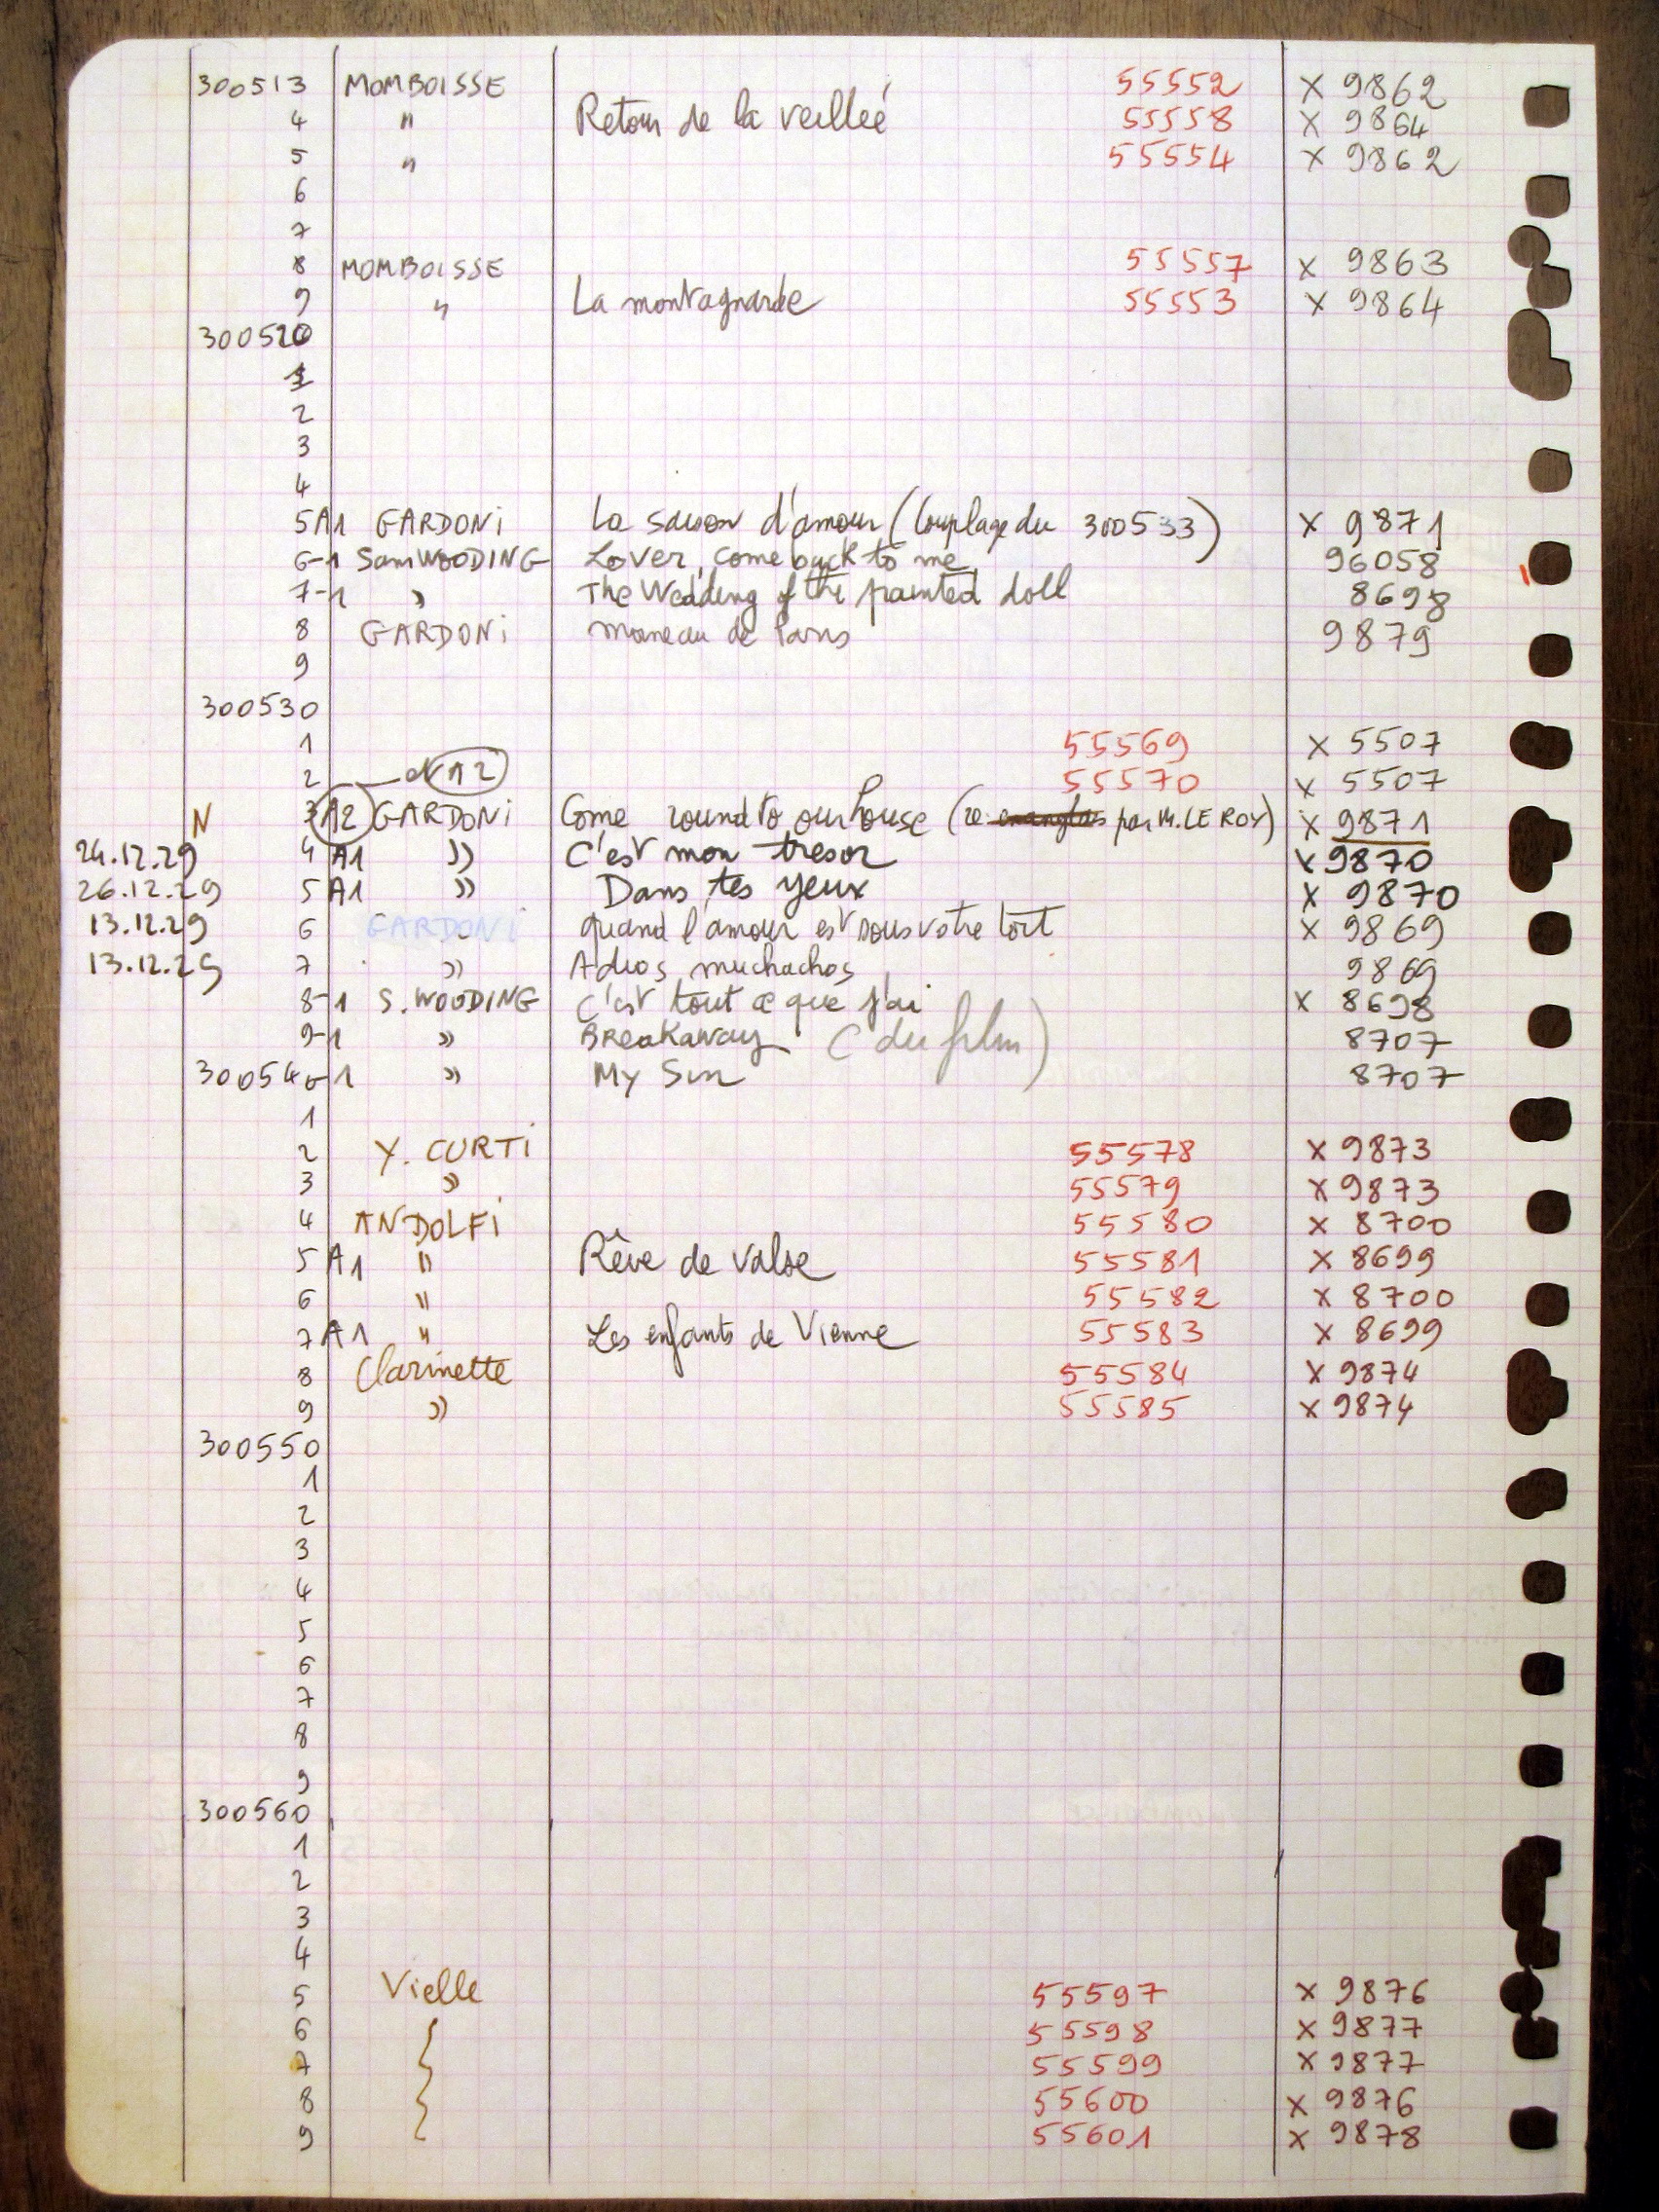 300513 MOMBOISSE 55552 X 9862
4 " Retour de la veilleé 55558 X 9864
5 " 55554 X 9862
6
7
8 MOMBOISSE 55557 X 9863
9 " La montagnarde 55553 X 9864
300520
1
2
3
4
5 A1 GARDONi La saison d'amour (Couplage du 300533) X 9871
6-1 Sam WOODING Lover, come back to me 96058
7-1 » The Wedding of the painted doll 8698
8 GARDONi moineau de Paris 9879
9
300530
1 55569 X 5507
2 N12 55570 X 5507
N 3 A2 GARDONi Come round to our house (re par M. LE ROY) X 9871
24.12.29 4 A1 » C'est mon tresor X 9870
26.12.29 5 A1 » Dans tes yeux X 9870
13.12.29 6 GARDONi quand l'amour est sous votre toit X 9869
13.12.29 7 » Adios muchachos 9869
8-1 S. WOODING C'est tout ce que j'ai X 8698
9-1 » Breakaway (du film) 8707
300540-1 » My Sin 8707
1
2 Y. CURTi 55578 X 9873
3 » 55579 X 9873
4 ANDOLFi 55580 X 8700
5 A1 " Rêve de valse 55581 X 8699
6 " 55582 X 8700
7 A1 " Les enfants de Vienne 55583 X 8699
8 Clarinette 55584 X 9874
9 » 55585 X 9874
300550
1
2
3
4
5
6
7
8
9
300560
1
2
3
4
5 Vielle 55597 X 9876
6 55598 X 9877
7 55599 X 9877
8 55600 X 9876
9 55601 X 9878